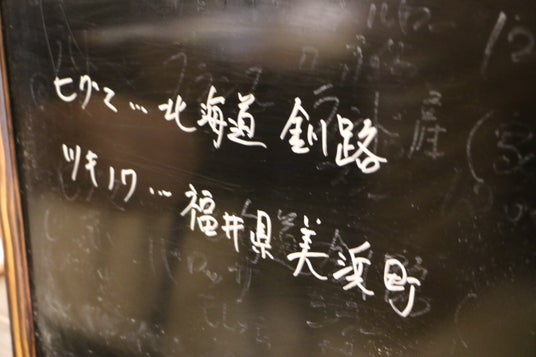 ヒグマ…北海道 釧路
ツキノワ…福井県美浜町